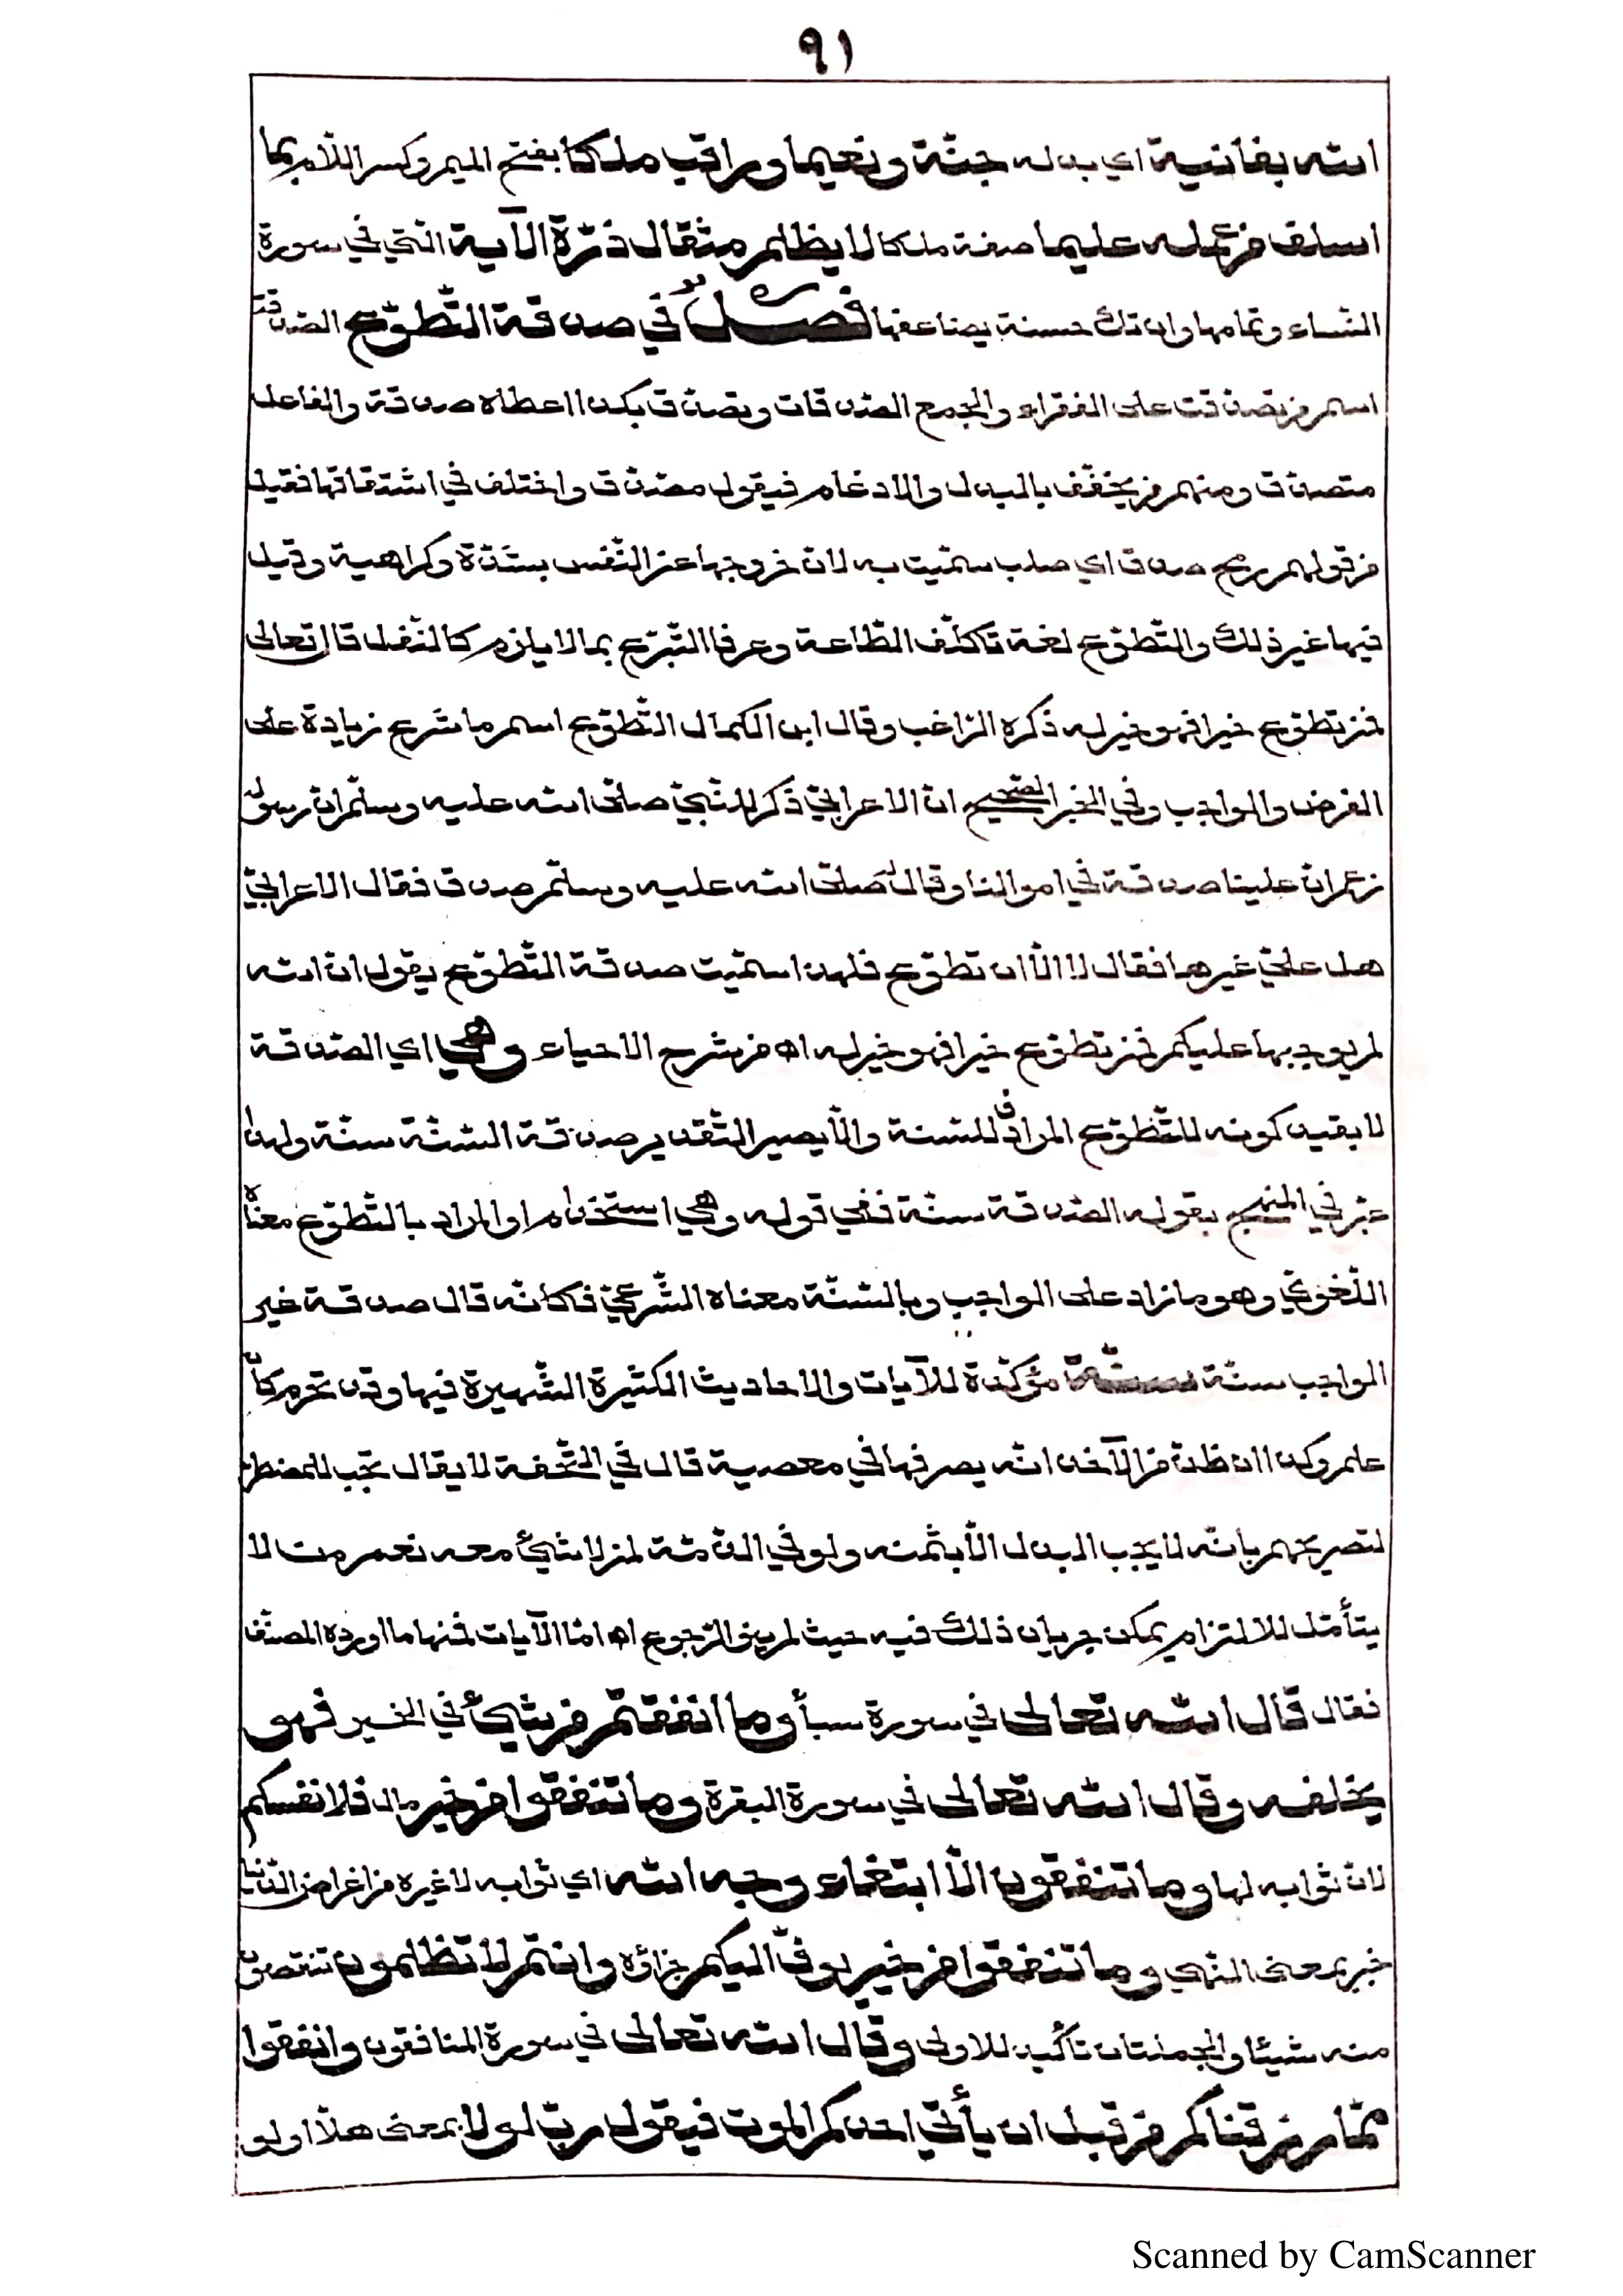 ٩١
الله بفانية اي بدله جنّة ونعيما وراقب ملكا بفتح الميم وكسر اللام بما
اسلف من عمله عليما صفة ملكا لا يظلم مثقال ذرّة الآية الّتي في سورة
النّساء وتمامها وان تك حسنة يضاعفها فصل في صدقة التّطوّع الصّدقة
اسم من تصدّقت على الفقراء والجمع الصّدقات وتصدّق بكذا اعطاه صدقة والفاعل
متصدّق ومنهم من يخفّف بالبدل والادغام فيقول مصّدّق واختلف في اشتقاقها فقيل
من قولهم رمح صدق اي صلب سمّيت به لان خروجها عن النّفس بشدّة وكراهية وقيل
فيها غير ذلك والتّطوّع لغة تكلّف الطّاعة وعرفا التّبرّع بما لا يلزم كالنّفل قال تعالى
فمن تطوّع خيرا فهو خير له ذكره الرّاغب وقال ابن الكمال التّطوّع اسم ما شرع زيادة على
الفرض والواجب وفي الخبر الصّحيح انّ الاعرابيّ ذكر للنّبيّ صلّى الله عليه وسلّم انّ رسولك
زعم انّ علينا صدقة في اموالنا وقال له صلّى الله عليه وسلّم صدق فقال الاعرابيّ
هل عليّ غيرها فقال لا الّا ان تطوّع فلهذا سمّيت صدقة التّطوّع يقول انّ الله
لم يوجبها عليكم فمن تطوّع خيرا فهو خير له اه من شرح الاحياء وهي اي الصّدقة
لا بقيد كونه للتّطوّع المرادف للسّنة والّا يصير التّقدير صدقة السّنّة سنّة ولهذا
عبّر في المنهج بقوله الصّدقة سنّة ففي قوله وهي استخدام او المراد بالتّطوّع معناه
اللّغويّ وهو ما زاد على الواجب وبالسّنّة معناه الشّرعيّ فكانّه قال صدقة غير
الواجب سنّة سنّة مؤكّدة للآيات والاحاديث الكثيرة الشّهيرة فيها وقد تحرم كأن
علم وكذا ان ظنّ من الآخذ انّه يصرفها في معصية قال في التّحفة لا يقال تجب للمضطرّ
لتصريحهم بانّه لا يجب البدل الّا بثمنه ولو في الذّمّة لمن لا شيئ معه نعم من لا
يتأهّل للالتزام يمكن جريان ذلك فيه حيث لم ينو الرّجوع اه امّا الآيات فمنها ما اورده المصنّف
فقال قال الله تعالى في سورة سبأ وما انفقتم من شيئ في الخير فهو
يخلفه وقال الله تعالى في سورة البقرة وما تنفقوا من خير مال فلانفسكم
لانّ ثوابه لها وما تنفقون الّا ابتغاء وجه الله اي ثوابه لا غيره من اغراض الدّنيا
خبر بمعنى النّهي وما تنفقوا من خير يوفّ اليكم جزاؤه وانتم لا تظلمون تنقصون
منه شيئا والجملتان تأكيد للاولى وقال الله تعالى في سورة المنافقون وانفقوا
ممّا رزقناكم من قبل ان يأتي احدكم الموت فيقول ربّ لولا بمعنى هلّا او لو
Scanned by CamScanner